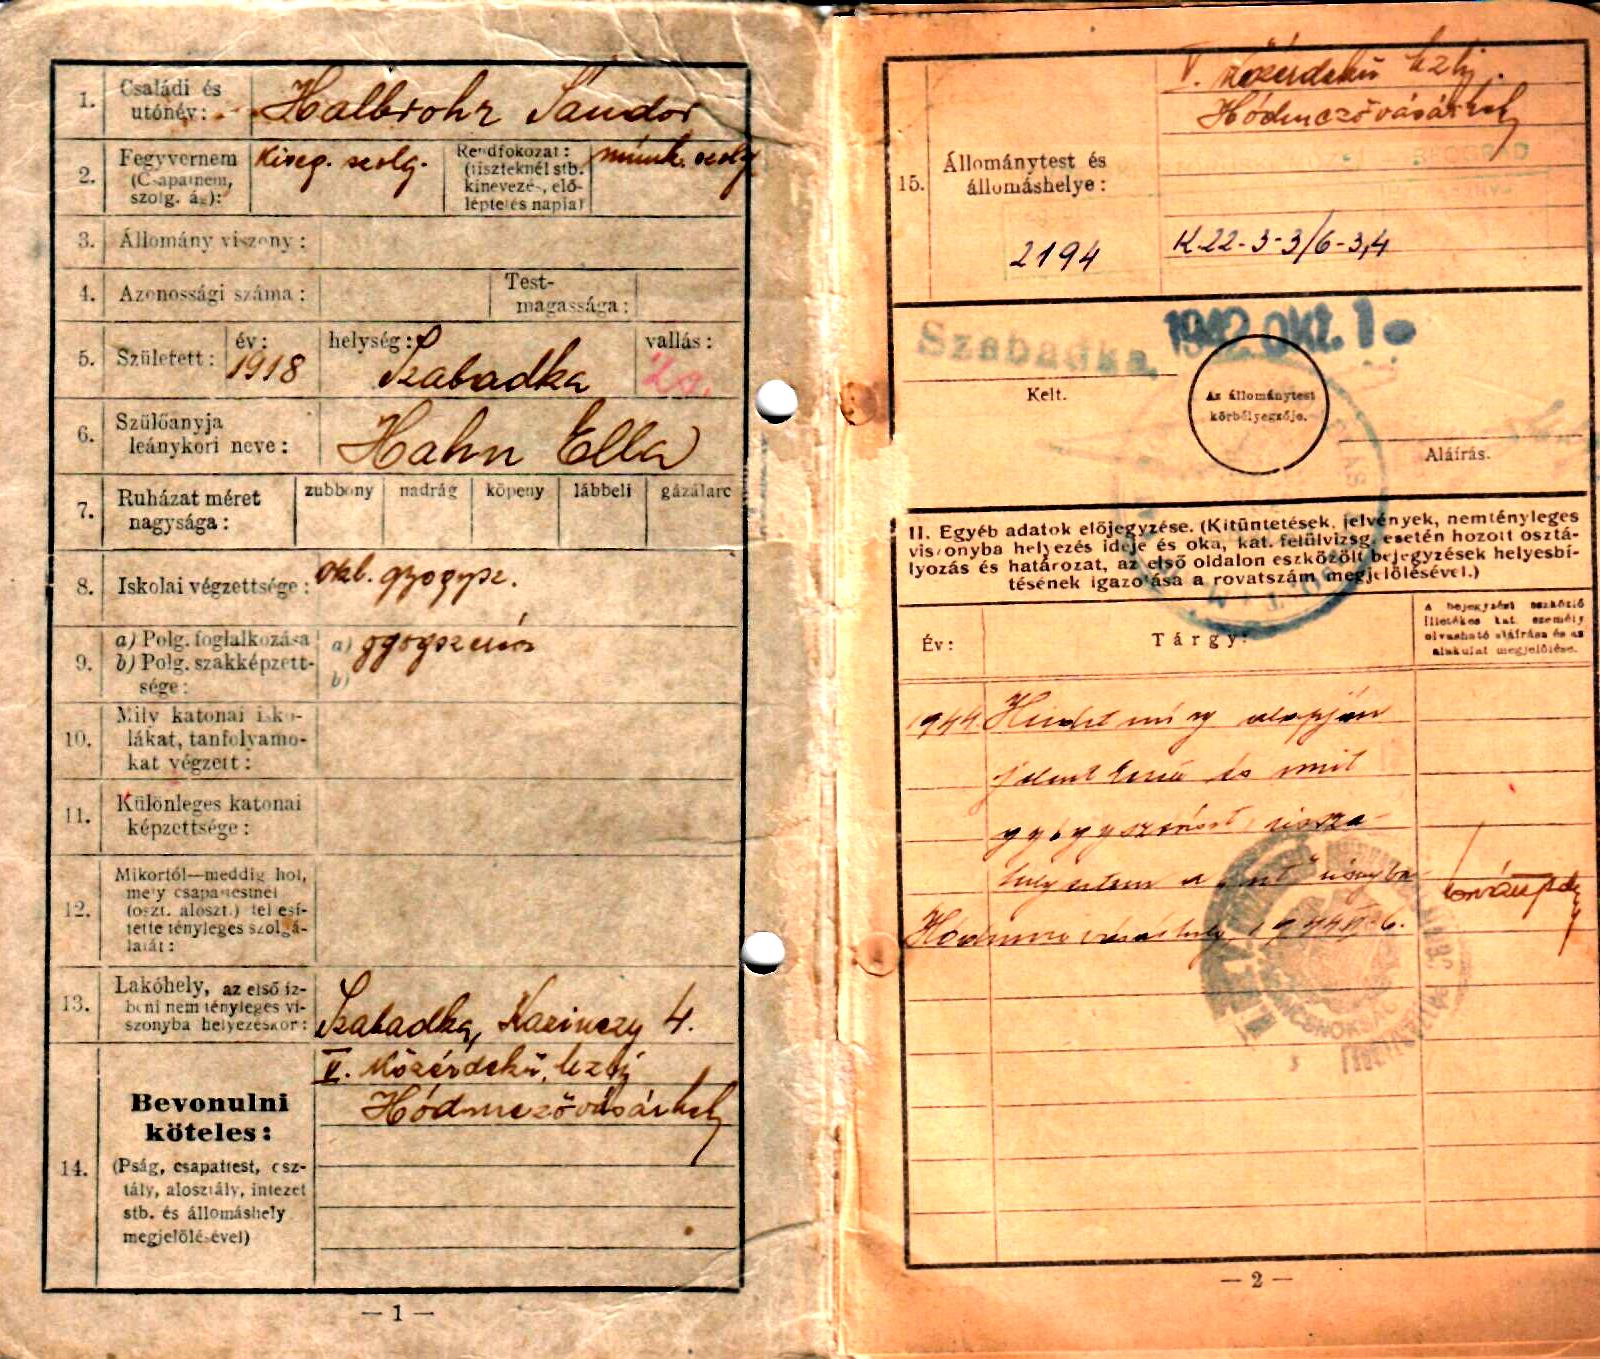 1. Családi és utónév: Halbrohr Sándor
2. Fegyvernem (Csapatnem, szolg. ág): Kiseg. szolg. Rendfokozat: (tiszteknél stb. kinevezés, előléptetés napja) munk. szolg
3. Állomány viszony:
4. Azonossági száma: Testmagassága:
5. Született: év: 1918 helység: Szabadka vallás: Zs.
6. Szülőanyja leánykori neve: Hahn Ella
7. Ruházat méret nagysága: zubbony nadrág köpeny lábbeli gázálarc
8. Iskolai végzettsége: okl. gyógysz.
9. a) Polg. foglalkozása a) gyógyszerész
b) Polg. szakképzettsége: b)
10. Mily katonai iskolákat, tanfolyamokat végzett:
11. Különleges katonai képzettsége:
12. Mikortól—meddig hol, mely csapattestnél (oszt. aloszt.) teljesítette tényleges szolgálatát:
13. Lakóhely, az első ízbeni nem tényleges viszonyba helyezéskor: Szabadka, Kazinczy 4.
14. Bevonulni köteles:
(Pság, csapattest, osztály, alosztály, intézet stb. és állomáshely megjelölésével)
V. közérdekű
Hódmezővásárhely
— 1 —
V. közérdekű
Hódmezővásárhely
15. Állománytest és állomáshelye:
2194 K.22-3-3/6-3,4
Szabadka, 1942. okt. 1
Kelt.
Az állománytest körbélyegzője.
Aláírás.
II. Egyéb adatok előjegyzése. (Kitüntetések, jelvények, nemtényleges
viszonyba helyezés ideje és oka, kat. felülvizsg. esetén hozott osztá-
lyozás és határozat, az első oldalon eszközölt bejegyzések helyesbí-
tésének igazolása a rovatszám megjelölésével.)
Év: Tárgy: A bejegyzést eszközlő illetékes kat. személy olvasható aláírása és az alakulat megjelölése.
1944. Hirdetmény alapján
jelentkezik és mint
gyógyszerészt vissza-
helyeztem a
Hódmezővásárhely 1944 6.
— 2 —